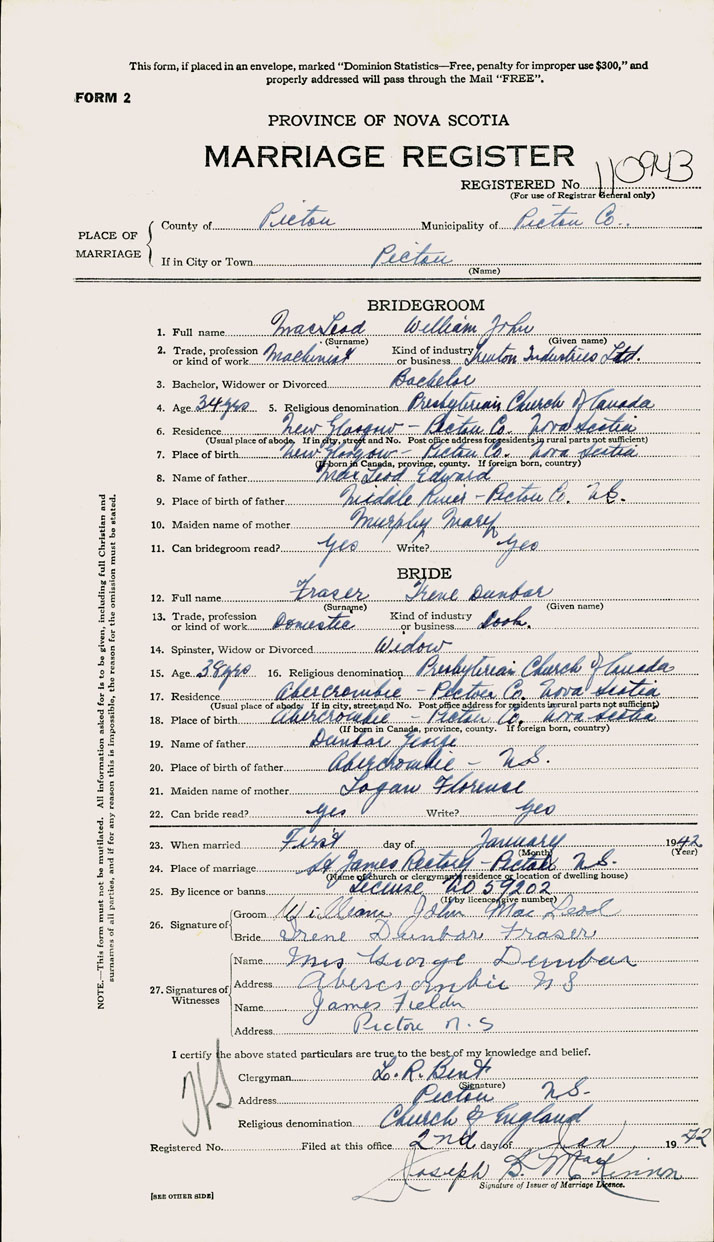 This form, if placed in an envelope, marked "Dominion Statistics—Free, penalty for improper use $300," and
properly addressed will pass through the Mail "FREE".
FORM 2
PROVINCE OF NOVA SCOTIA
MARRIAGE REGISTER
REGISTERED No. 110943
(For use of Registrar General only)
PLACE OF MARRIAGE
County of Pictou Municipality of Pictou Co.
If in City or Town Pictou
(Name)
BRIDEGROOM
1. Full name MacLeod William John
(Surname) (Given name)
2. Trade, profession or kind of work Machinist Kind of industry or business Trenton Industries Ltd.
3. Bachelor, Widower or Divorced Bachelor
4. Age 34 yrs 5. Religious denomination Presbyterian Church of Canada
6. Residence New Glasgow - Pictou Co. Nova Scotia
(Usual place of abode. If in city, street and No. Post office address for residents in rural parts not sufficient)
7. Place of birth New Glasgow - Pictou Co. Nova Scotia
(If born in Canada, province, county. If foreign born, country)
8. Name of father MacLeod Edward
9. Place of birth of father Middle River - Pictou Co. N.S.
10. Maiden name of mother Murphy Mary
11. Can bridegroom read? Yes Write? Yes
BRIDE
12. Full name Fraser Irene Dunbar
(Surname) (Given name)
13. Trade, profession or kind of work Domestic Kind of industry or business Cook.
14. Spinster, Widow or Divorced Widow
15. Age 38 yrs 16. Religious denomination Presbyterian Church of Canada
17. Residence Abercrombie - Pictou Co. Nova Scotia
(Usual place of abode. If in city, street and No. Post office address for residents in rural parts not sufficient)
18. Place of birth Abercrombie - Pictou Co. Nova Scotia
(If born in Canada, province, county. If foreign born, country)
19. Name of father Dunbar George
20. Place of birth of father Abercrombie - N.S.
21. Maiden name of mother Logan Florence
22. Can bride read? Yes Write? Yes
23. When married First day of January 1942
(Month) (Year)
24. Place of marriage St James Rectory - Pictou N.S.
(Name of church or clergyman's residence or location of dwelling house)
25. By licence or banns License No 59202
(If by licence give number)
26. Signature of
Groom William John MacLeod
Bride Irene Dunbar Fraser
27. Signatures of Witnesses
Name Mrs George Dunbar
Address Abercrombie N S
Name James
Address Pictou N.S
I certify the above stated particulars are true to the best of my knowledge and belief.
Clergyman L. R. Bent
(Signature)
Address Pictou N.S.
Religious denomination Church of England
Registered No. Filed at this office 2nd day of Jan 1942
Joseph MacKinnon
Signature of Issuer of Marriage Licence.
[SEE OTHER SIDE]
NOTE.—This form must not be mutilated. All information asked for is to be given, including full Christian and
surnames of all parties, and if for any reason this is impossible, the reason for the omission must be stated.